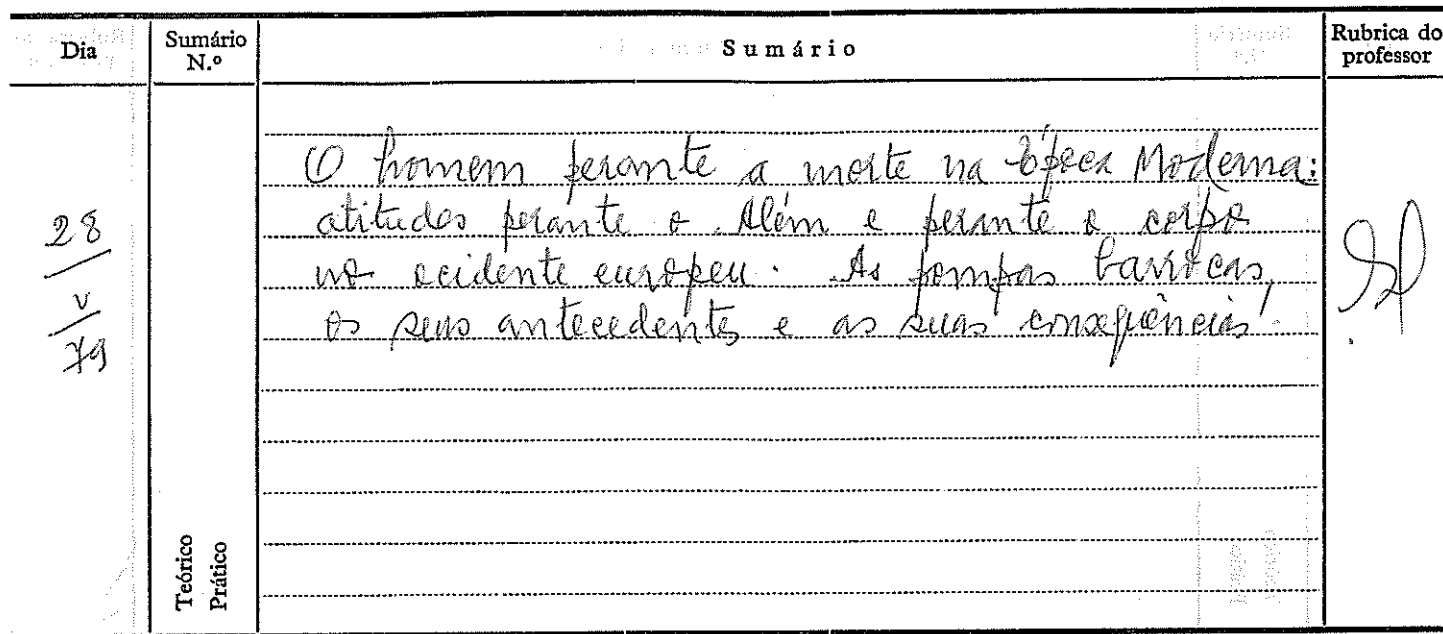 Dia
Sumário N.º
Sumário
Rubrica do professor
28
V
79
O homem perante a morte na Época Moderna:
atitudes perante o Além e perante o corpo
no ocidente europeu. As pompas barrocas,
os seus antecedentes e as suas consequências.
Teórico
Prático